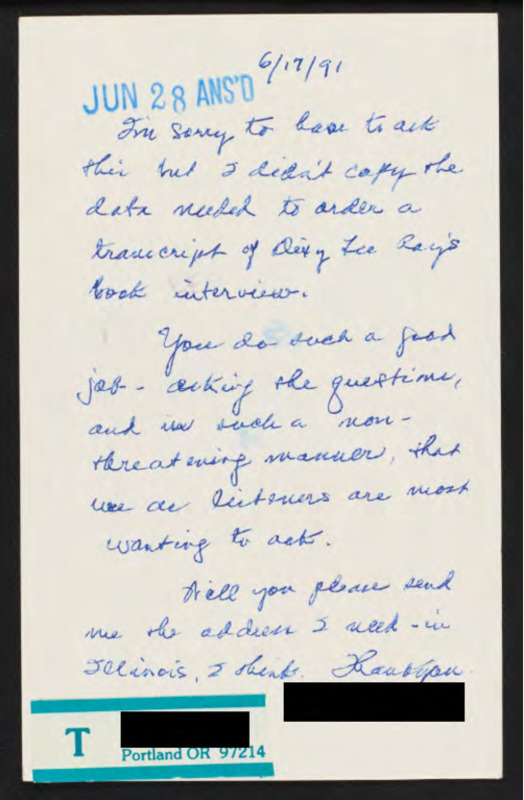 6/17/91
JUN 28 ANS'D
I'm sorry to have to ask
this but I didn't copy the
data needed to order a
transcript of Dixy Lee Ray's
book interview.
You do such a good
job - asking the questions,
and in such a non-
threatening manner, that
we as listeners are most
wanting to ask.
Will you please send
me the address I need - in
Illinois, I think. Thank you.
T
Portland OR 97214